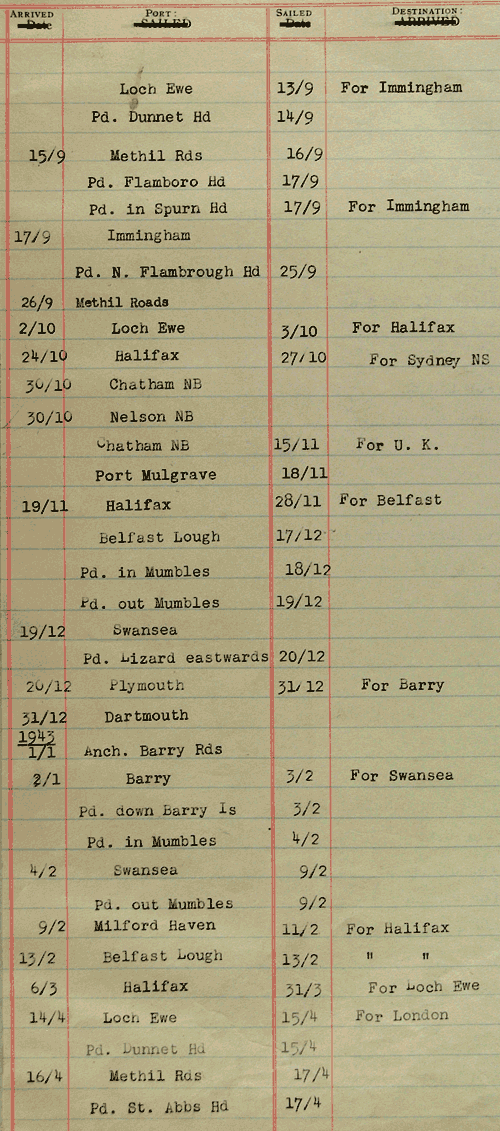 ARRIVED PORT: SAILED DESTINATION:
Date SAILED Date ARRIVED
Loch Ewe 13/9 For Immingham
Pd. Dunnet Hd 14/9
15/9 Methil Rds 16/9
Pd. Flamboro Hd 17/9
Pd. in Spurn Hd 17/9 For Immingham
17/9 Immingham
Pd. N. Flambrough Hd 25/9
26/9 Methil Roads
2/10 Loch Ewe 3/10 For Halifax
24/10 Halifax 27/10 For Sydney NS
30/10 Chatham NB
30/10 Nelson NB
Chatham NB 15/11 For U. K.
Port Mulgrave 18/11
19/11 Halifax 28/11 For Belfast
Belfast Lough 17/12
Pd. in Mumbles 18/12
Pd. out Mumbles 19/12
19/12 Swansea
Pd. Lizard eastwards 20/12
20/12 Plymouth 31/12 For Barry
31/12 Dartmouth
1943
1/1 Anch. Barry Rds
2/1 Barry 3/2 For Swansea
Pd. down Barry Is 3/2
Pd. in Mumbles 4/2
4/2 Swansea 9/2
Pd. out Mumbles 9/2
9/2 Milford Haven 11/2 For Halifax
13/2 Belfast Lough 13/2 " "
6/3 Halifax 31/3 For Loch Ewe
14/4 Loch Ewe 15/4 For London
Pd. Dunnet Hd 15/4
16/4 Methil Rds 17/4
Pd. St. Abbs Hd 17/4